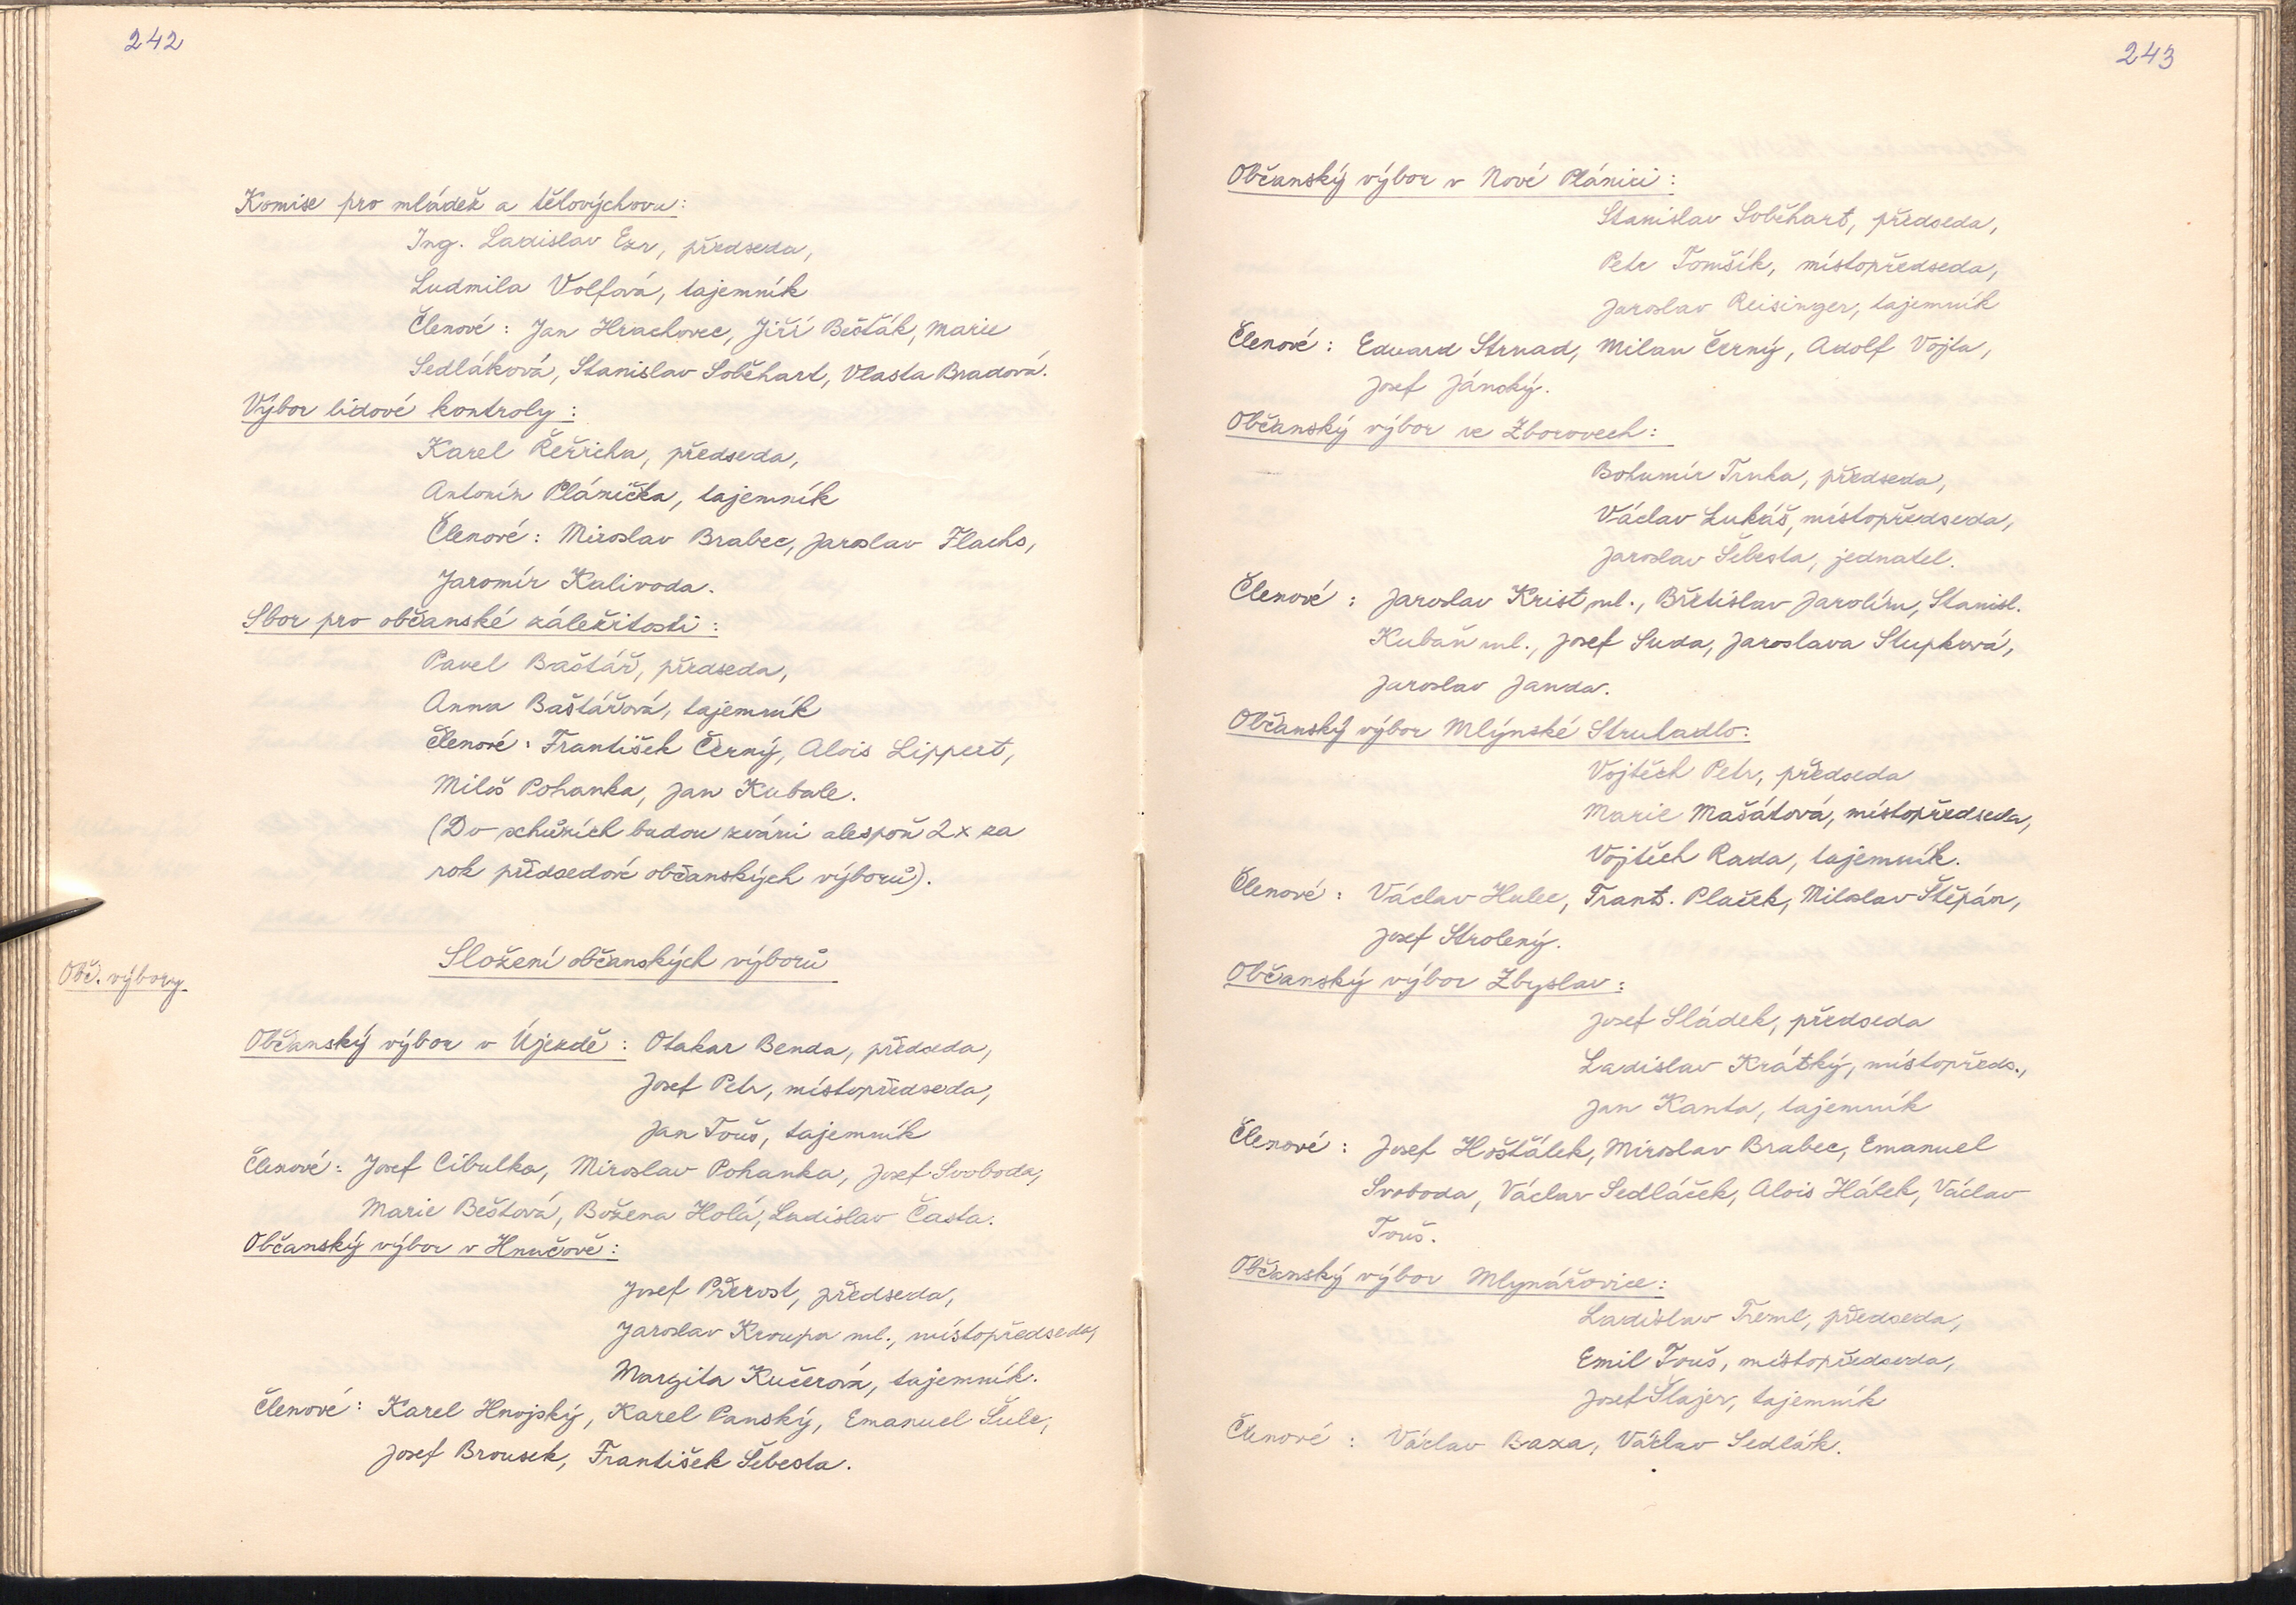 242
Komise pro mládež a tělovýchovu:
Ing. Ladislav Ezr, předseda,
Ludmila Volfová, tajemník
Členové: Jan Hrachovec, Jiří Bešťák, Marie
Sedláková, Stanislav Soběhart, Vlasta Bradová.
Výbor lidové kontroly:
Karel Řeřicha, předseda,
Antonín Plánička, tajemník
Členové: Miroslav Brabec, Jaroslav Flachs,
Jaromír Kalivoda.
Sbor pro občanské záležitosti:
Pavel Baštář, předseda,
Anna Baštářová, tajemník
členové: František Černý, Alois Lippert,
Miloš Pohanka, Jan Kubale.
(Do schůzích budou zváni alespoň 2x za
rok předsedové občanských výborů).
Složení občanských výborů
Obč. výbory
Občanský výbor v Újezdě: Otakar Benda, předseda,
Josef Petr, místopředseda,
Jan Touš, tajemník
Členové: Josef Cibulka, Miroslav Pohanka, Josef Svoboda,
Marie Beštová, Božena Holá, Ladislav Časta.
Občanský výbor v Hnačově:
Josef Přerost, předseda,
Jaroslav Kroupa ml., místopředseda,
Margita Kučerová, tajemník.
Členové: Karel Hnojský, Karel Panský, Emanuel Šulc,
Josef Brousek, František Šebesta.
243
Občanský výbor v Nové Plánici:
Stanislav Soběhart, předseda,
Petr Tomšík, místopředseda,
Jaroslav Reisinger, tajemník
Členové: Eduard Strnad, Milan Černý, Adolf Vojta,
Josef Jánský.
Občanský výbor ve Zborovech:
Bohumír Truha, předseda,
Václav Lukáš, místopředseda,
Jaroslav Šebesta, jednatel.
Členové: Jaroslav Krist ml., Břetislav Jarolím, Stanisl.
Kubaň ml., Josef Suda, Jaroslava Stupková,
Jaroslav Janda.
Občanský výbor Mlýnské Struhadlo:
Vojtěch Petr, předseda
Marie Mašátová, místopředseda,
Vojtěch Rada, tajemník.
Členové: Václav Hulec, Frant. Plaček, Miloslav Štěpán,
Josef Strolený.
Občanský výbor Zbyslav:
Josef Sládek, předseda
Ladislav Krátký, místopředs.,
Jan Kanta, tajemník
Členové: Josef Hošťálek, Miroslav Brabec, Emanuel
Svoboda, Václav Sedláček, Alois Hálek, Václav
Touš.
Občanský výbor Mlynářovice:
Ladislav Treml, předseda,
Emil Touš, místopředseda,
Josef Šlajer, tajemník
Členové: Václav Baxa, Václav Sedlák.